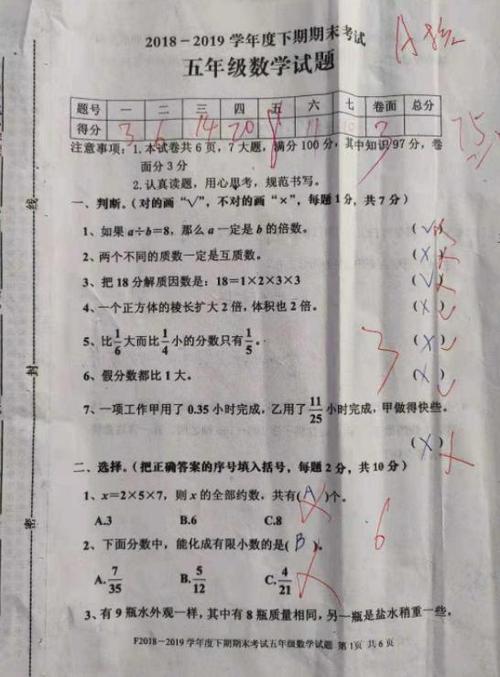 2018－2019学年度下期期末考试
A卷
五年级数学试题
题号 一 二 三 四 五 六 七 卷面 总分
得分 3 6 14 20 8 11 10 3 75
注意事项：1.本试卷共6页，7大题，满分100分，其中知识97分，卷
面分3分
2.认真读题，用心思考，规范书写。
一、判断。（对的画“√”，不对的画“×”，每题1分，共7分）
1、如果a÷b=8，那么a一定是b的倍数。 (√)
2、两个不同的质数一定是互质数。 (X)
3、把18分解质因数是：18=1×2×3×3 (√)
4、一个正方体的棱长扩大2倍，体积也2倍。 (X)
5、比1/6大而比1/4小的分数只有1/5。 (X)
3
6、假分数都比1大。 (X)
7、一项工作甲用了0.35小时完成，乙用了11/25小时完成，甲做得快些。
(X)
二、选择。（把正确答案的序号填入括号，每题2分，共10分）
1、x=2×5×7，则x的全部约数，共有(A)个。
A.3 B.6 C.8
6
2、下面分数中，能化成有限小数的是(B)。
A.7/35 B.5/12 C.4/21
3、有9瓶水外观一样，其中有8瓶质量相同，另一瓶是盐水稍重一些。
F2018－2019学年度下期期末考试五年级数学试题 第1页 共6页
线
封
密